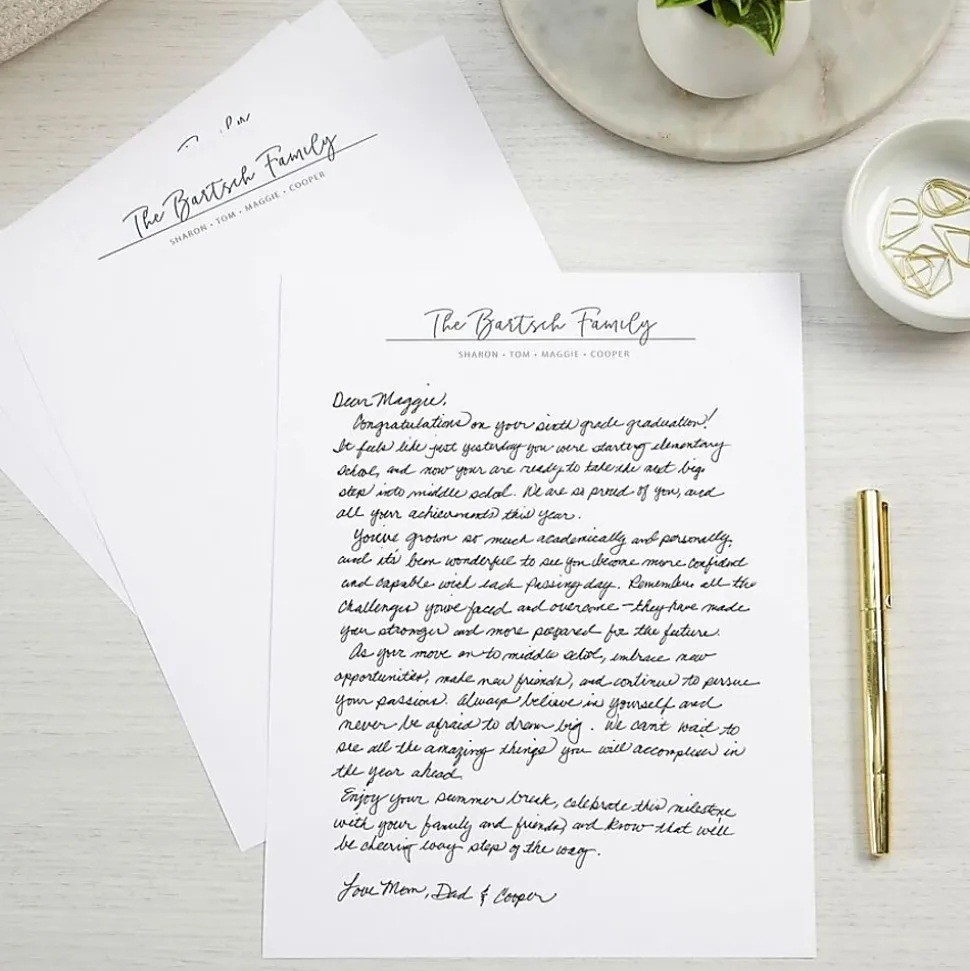 The Bartsch Family
SHARON • TOM • MAGGIE • COOPER
The Bartsch Family
SHARON • TOM • MAGGIE • COOPER
Dear Maggie,
Congratulations on your sixth grade graduation!
It feels like just yesterday you were starting elementary
school, and now your are ready to take the next big
step into middle school. We are so proud of you, and
all your achievements this year.
You've grown so much academically and personally,
and it's been wonderful to see you become more confident
and capable with each passing day. Remember all the
challenges you've faced and overcome – they have made
your stronger and more prepared for the future.
As your move on to middle school, embrace new
opportunities, make new friends, and continue to persue
your passions. Always believe in yourself and
never be afraid to dream big. We can't wait to
see all the amazing things you will accomplish in
the year ahead.
Enjoy your summer break, celebrate this milestone
with your family and friends, and know that we'll
be cheering every step of the way.
Love Mom, Dad & Cooper